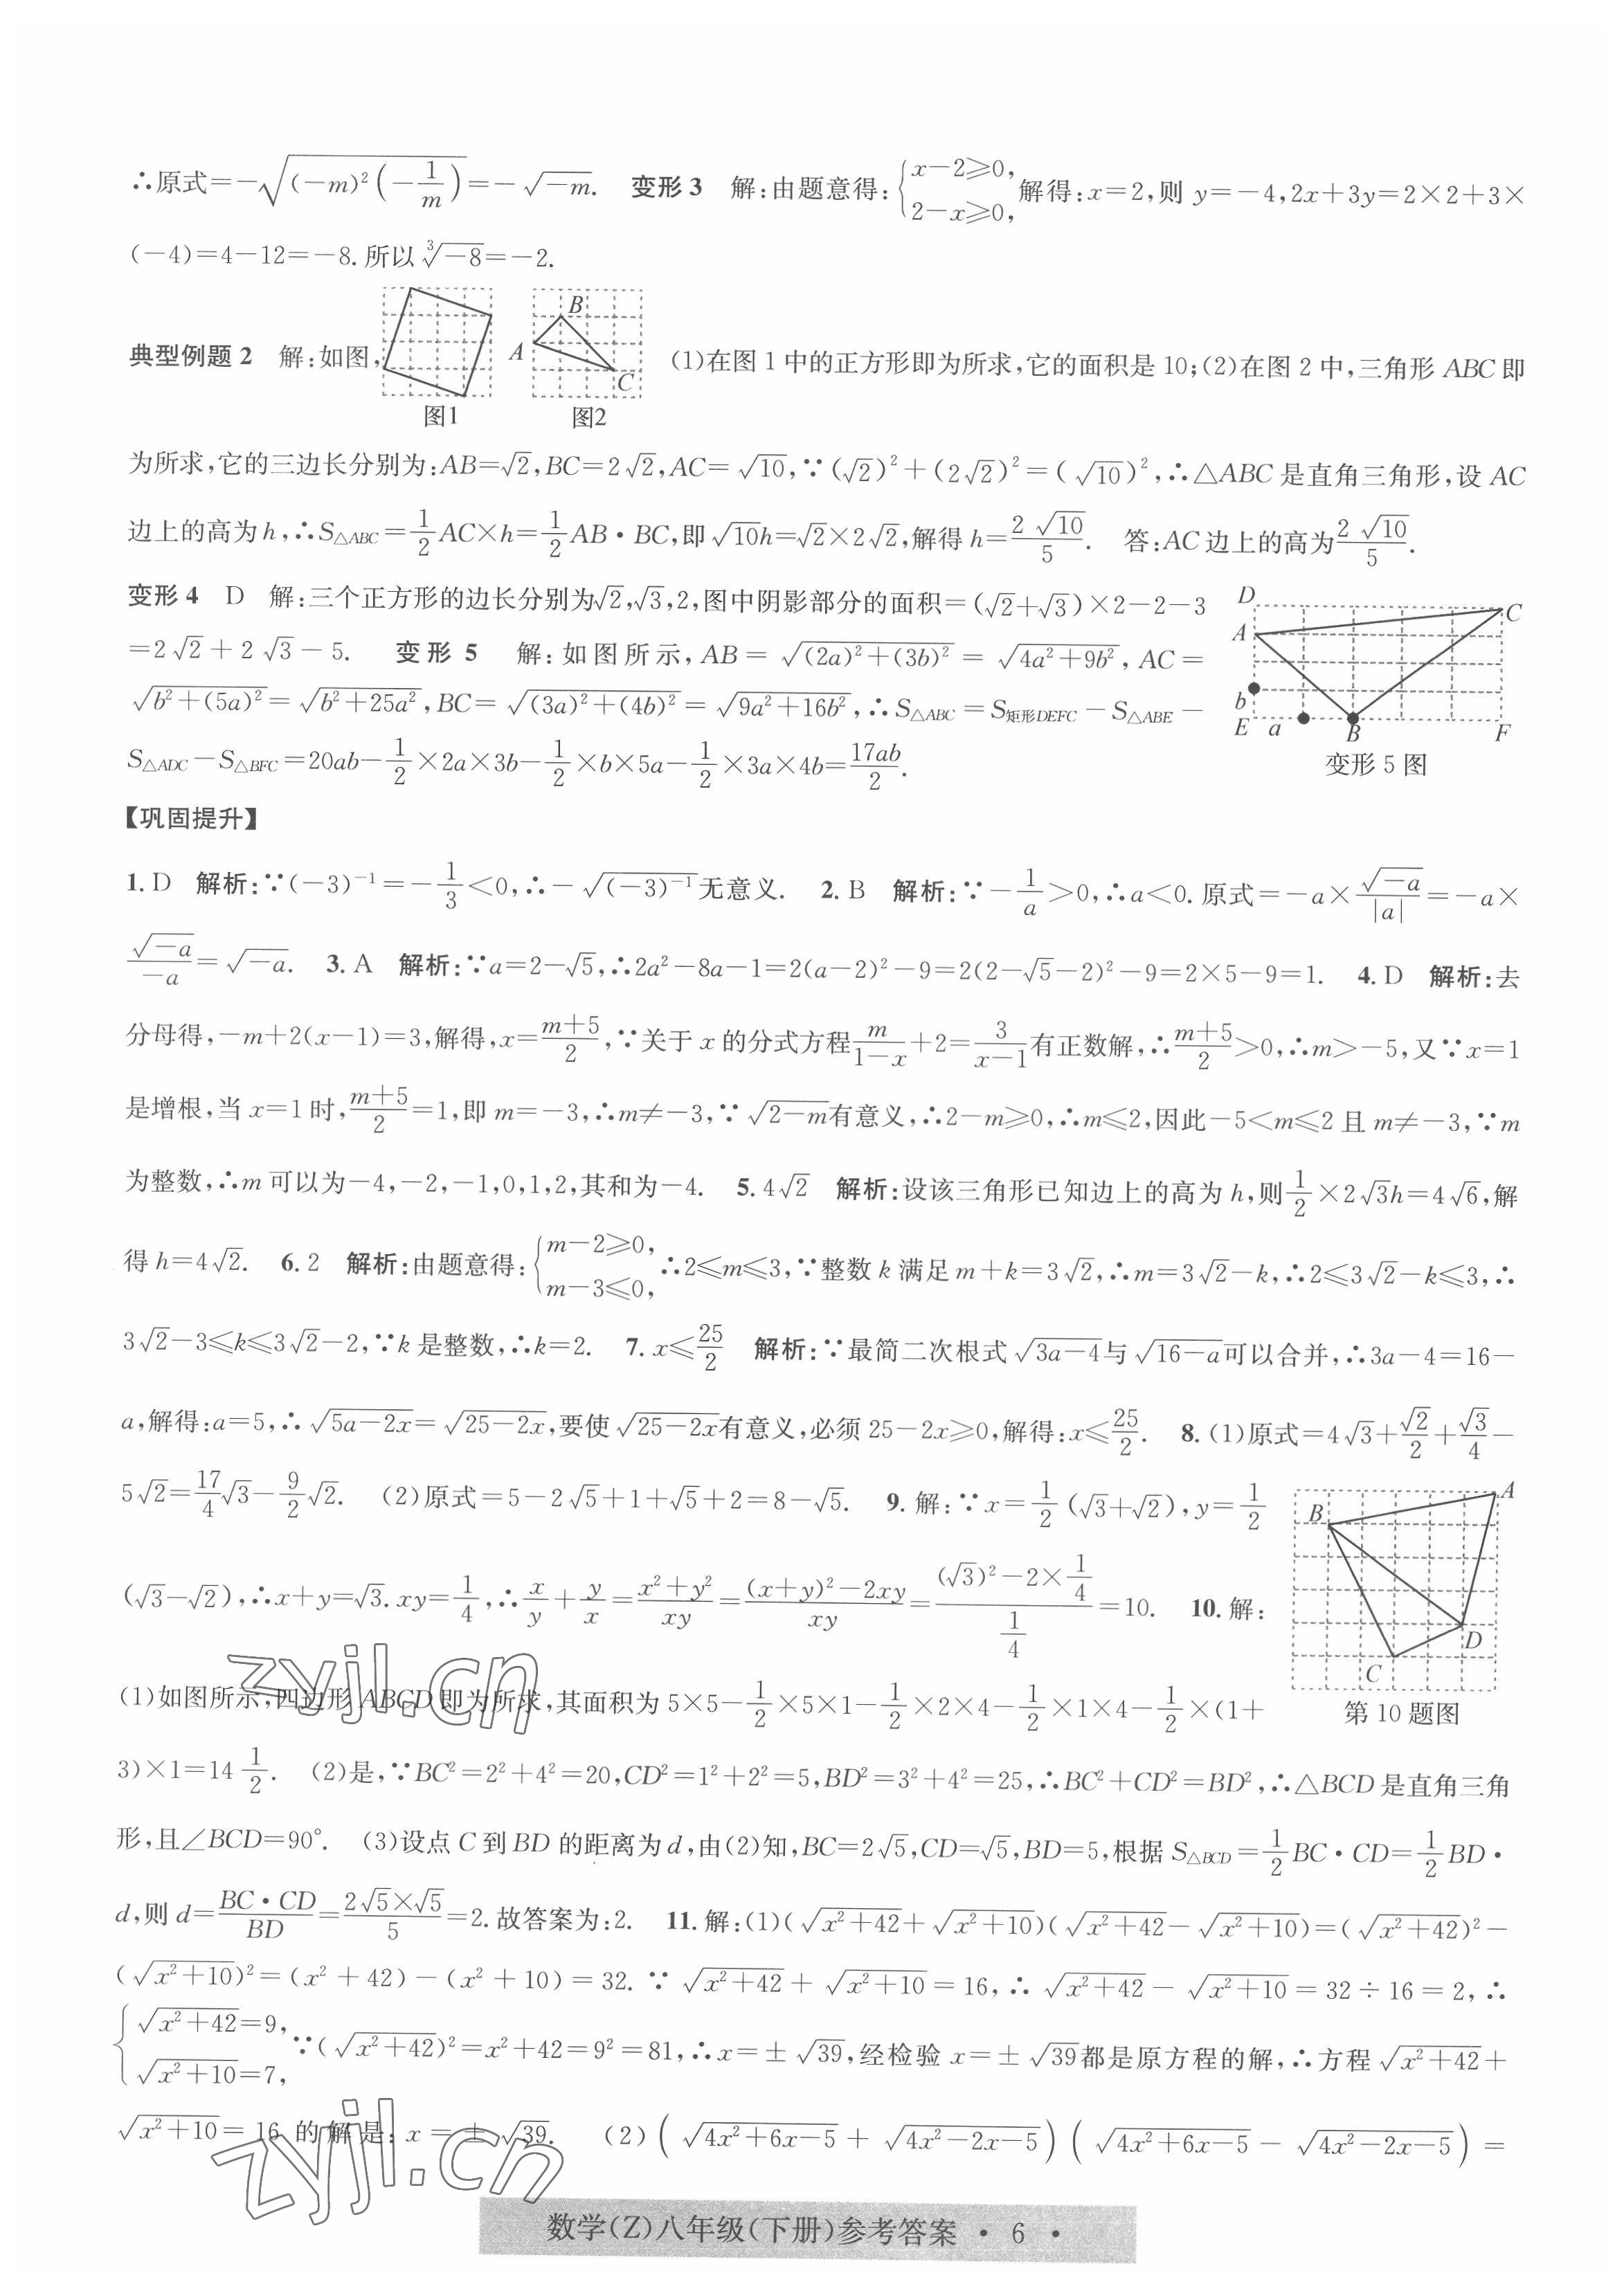 ∴原式=-√((-m)²(-1/m))=-√(-m). 变形3 解:由题意得:{x-2≥0, 2-x≥0, 解得:x=2,则 y=-4,2x+3y=2×2+3×
(-4)=4-12=-8.所以∛(-8)=-2.
B
A
C
典型例题2 解:如图, (1)在图1中的正方形即为所求,它的面积是10;(2)在图2中,三角形ABC即
图1 图2
为所求,它的三边长分别为:AB=√2,BC=2√2,AC=√10,∵(√2)²+(2√2)²=(√10)²,∴△ABC是直角三角形,设AC
边上的高为h,∴S△ABC=1/2AC×h=1/2AB·BC,即√10h=√2×2√2,解得h=2√10/5. 答:AC边上的高为2√10/5.
变形4 D 解:三个正方形的边长分别为√2,√3,2,图中阴影部分的面积=(√2+√3)×2-2-3
=2√2+2√3-5. 变形5 解:如图所示,AB=√((2a)²+(3b)²)=√(4a²+9b²),AC=
√(b²+(5a)²)=√(b²+25a²),BC=√((3a)²+(4b)²)=√(9a²+16b²),∴S△ABC=S矩形DEFC-S△ABE-
S△ADC-S△BFC=20ab-1/2×2a×3b-1/2×b×5a-1/2×3a×4b=17ab/2.
D
C
A
b
E a B F
变形5图
【巩固提升】
1. D 解析:∵(-3)⁻¹=-1/3<0,∴-√((-3)⁻¹)无意义. 2. B 解析:∵-1/a>0,∴a<0.原式=-a×√(-a)/|a|=-a×
√(-a)/(-a)=√(-a). 3. A 解析:∵a=2-√5,∴2a²-8a-1=2(a-2)²-9=2(2-√5-2)²-9=2×5-9=1. 4. D 解析:去
分母得,-m+2(x-1)=3,解得,x=(m+5)/2,∵关于x的分式方程m/(1-x)+2=3/(x-1)有正数解,∴(m+5)/2>0,∴m>-5,又∵x=1
是增根,当x=1时,(m+5)/2=1,即m=-3,∴m≠-3,∵√(2-m)有意义,∴2-m≥0,∴m≤2,因此-5<m≤2且m≠-3,∵m
为整数,∴m可以为-4,-2,-1,0,1,2,其和为-4. 5. 4√2 解析:设该三角形已知边上的高为h,则1/2×2√3h=4√6,解
得h=4√2. 6. 2 解析:由题意得:{m-2≥0, m-3≤0, ∴2≤m≤3,∵整数k满足m+k=3√2,∴m=3√2-k,∴2≤3√2-k≤3,∴
3√2-3≤k≤3√2-2,∵k是整数,∴k=2. 7. x≤25/2 解析:∵最简二次根式√(3a-4)与√(16-a)可以合并,∴3a-4=16-
a,解得:a=5,∴√(5a-2x)=√(25-2x),要使√(25-2x)有意义,必须25-2x≥0,解得:x≤25/2. 8. (1)原式=4√3+√2/2+√3/4-
5√2=17/4√3-9/2√2. (2)原式=5-2√5+1+√5+2=8-√5. 9. 解:∵x=1/2(√3+√2),y=1/2
(√3-√2),∴x+y=√3.xy=1/4,∴x/y+y/x=(x²+y²)/xy=((x+y)²-2xy)/xy=((√3)²-2×1/4)/(1/4)=10. 10. 解:
A
B
D
C
第10题图
(1)如图所示,四边形ABCD即为所求,其面积为5×5-1/2×5×1-1/2×2×4-1/2×1×4-1/2×(1+
3)×1=14 1/2. (2)是,∵BC²=2²+4²=20,CD²=1²+2²=5,BD²=3²+4²=25,∴BC²+CD²=BD²,∴△BCD是直角三角
形,且∠BCD=90°. (3)设点C到BD的距离为d,由(2)知,BC=2√5,CD=√5,BD=5,根据S△BCD=1/2BC·CD=1/2BD·
d,则d=BC·CD/BD=2√5×√5/5=2.故答案为:2. 11. 解:(1)(√(x²+42)+√(x²+10))(√(x²+42)-√(x²+10))=(√(x²+42))²-
(√(x²+10))²=(x²+42)-(x²+10)=32.∵√(x²+42)+√(x²+10)=16,∴√(x²+42)-√(x²+10)=32÷16=2,∴
{√(x²+42)=9, √(x²+10)=7, ∵(√(x²+42))²=x²+42=9²=81,∴x=±√39,经检验x=±√39都是原方程的解,∴方程√(x²+42)+
√(x²+10)=16的解是:x=±√39. (2)(√(4x²+6x-5)+√(4x²-2x-5))(√(4x²+6x-5)-√(4x²-2x-5))=
zyjl.cn
zyjl.cn
数学(Z)八年级(下册)参考答案 · 6 ·